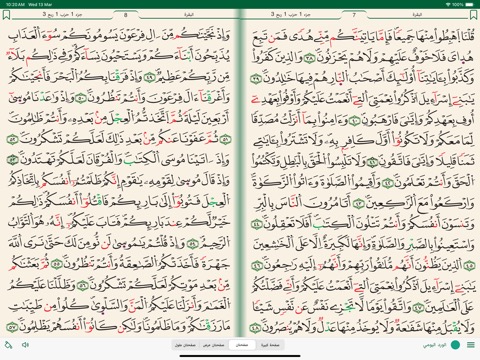 10:20 AM Wed 13 Mar
البقرة
7
جزء 1 حزب 1 ربع 3
قُلْنَا ٱهْبِطُوا۟ مِنْهَا جَمِيعًا فَإِمَّا يَأْتِيَنَّكُم مِّنِّى هُدًى فَمَن تَبِعَ
هُدَاىَ فَلَا خَوْفٌ عَلَيْهِمْ وَلَا هُمْ يَحْزَنُونَ ٣٨ وَٱلَّذِينَ كَفَرُوا۟
وَكَذَّبُوا۟ بِـَٔايَـٰتِنَآ أُو۟لَـٰٓئِكَ أَصْحَـٰبُ ٱلنَّارِ هُمْ فِيهَا خَـٰلِدُونَ ٣٩
يَـٰبَنِىٓ إِسْرَٰٓءِيلَ ٱذْكُرُوا۟ نِعْمَتِىَ ٱلَّتِىٓ أَنْعَمْتُ عَلَيْكُمْ وَأَوْفُوا۟ بِعَهْدِىٓ
أُوفِ بِعَهْدِكُمْ وَإِيَّـٰىَ فَٱرْهَبُونِ ٤٠ وَءَامِنُوا۟ بِمَآ أَنزَلْتُ مُصَدِّقًا
لِّمَا مَعَكُمْ وَلَا تَكُونُوٓا۟ أَوَّلَ كَافِرٍۭ بِهِۦ وَلَا تَشْتَرُوا۟ بِـَٔايَـٰتِى
ثَمَنًا قَلِيلًا وَإِيَّـٰىَ فَٱتَّقُونِ ٤١ وَلَا تَلْبِسُوا۟ ٱلْحَقَّ بِٱلْبَـٰطِلِ وَتَكْتُمُوا۟
ٱلْحَقَّ وَأَنتُمْ تَعْلَمُونَ ٤٢ وَأَقِيمُوا۟ ٱلصَّلَوٰةَ وَءَاتُوا۟ ٱلزَّكَوٰةَ
وَٱرْكَعُوا۟ مَعَ ٱلرَّٰكِعِينَ ٤٣ أَتَأْمُرُونَ ٱلنَّاسَ بِٱلْبِرِّ
وَتَنسَوْنَ أَنفُسَكُمْ وَأَنتُمْ تَتْلُونَ ٱلْكِتَـٰبَ أَفَلَا تَعْقِلُونَ ٤٤
وَٱسْتَعِينُوا۟ بِٱلصَّبْرِ وَٱلصَّلَوٰةِ وَإِنَّهَا لَكَبِيرَةٌ إِلَّا عَلَى ٱلْخَـٰشِعِينَ ٤٥
ٱلَّذِينَ يَظُنُّونَ أَنَّهُم مُّلَـٰقُوا۟ رَبِّهِمْ وَأَنَّهُمْ إِلَيْهِ رَٰجِعُونَ ٤٦
يَـٰبَنِىٓ إِسْرَٰٓءِيلَ ٱذْكُرُوا۟ نِعْمَتِىَ ٱلَّتِىٓ أَنْعَمْتُ عَلَيْكُمْ وَأَنِّى فَضَّلْتُكُمْ
عَلَى ٱلْعَـٰلَمِينَ ٤٧ وَٱتَّقُوا۟ يَوْمًا لَّا تَجْزِى نَفْسٌ عَن نَّفْسٍ شَيْـًٔا
وَلَا يُقْبَلُ مِنْهَا شَفَـٰعَةٌ وَلَا يُؤْخَذُ مِنْهَا عَدْلٌ وَلَا هُمْ يُنصَرُونَ ٤٨
البقرة
8
جزء 1 حزب 1 ربع 3
وَإِذْ نَجَّيْنَـٰكُم مِّنْ ءَالِ فِرْعَوْنَ يَسُومُونَكُمْ سُوٓءَ ٱلْعَذَابِ
يُذَبِّحُونَ أَبْنَآءَكُمْ وَيَسْتَحْيُونَ نِسَآءَكُمْ وَفِى ذَٰلِكُم بَلَآءٌ
مِّن رَّبِّكُمْ عَظِيمٌ ٤٩ وَإِذْ فَرَقْنَا بِكُمُ ٱلْبَحْرَ فَأَنجَيْنَـٰكُمْ
وَأَغْرَقْنَآ ءَالَ فِرْعَوْنَ وَأَنتُمْ تَنظُرُونَ ٥٠ وَإِذْ وَٰعَدْنَا مُوسَىٰٓ
أَرْبَعِينَ لَيْلَةً ثُمَّ ٱتَّخَذْتُمُ ٱلْعِجْلَ مِنۢ بَعْدِهِۦ وَأَنتُمْ ظَـٰلِمُونَ
٥١ ثُمَّ عَفَوْنَا عَنكُم مِّنۢ بَعْدِ ذَٰلِكَ لَعَلَّكُمْ تَشْكُرُونَ ٥٢
وَإِذْ ءَاتَيْنَا مُوسَى ٱلْكِتَـٰبَ وَٱلْفُرْقَانَ لَعَلَّكُمْ تَهْتَدُونَ ٥٣
وَإِذْ قَالَ مُوسَىٰ لِقَوْمِهِۦ يَـٰقَوْمِ إِنَّكُمْ ظَلَمْتُمْ أَنفُسَكُم بِٱتِّخَاذِكُمُ
ٱلْعِجْلَ فَتُوبُوٓا۟ إِلَىٰ بَارِئِكُمْ فَٱقْتُلُوٓا۟ أَنفُسَكُمْ ذَٰلِكُمْ
خَيْرٌ لَّكُمْ عِندَ بَارِئِكُمْ فَتَابَ عَلَيْكُمْ إِنَّهُۥ هُوَ ٱلتَّوَّابُ
ٱلرَّحِيمُ ٥٤ وَإِذْ قُلْتُمْ يَـٰمُوسَىٰ لَن نُّؤْمِنَ لَكَ حَتَّىٰ نَرَى ٱللَّهَ
جَهْرَةً فَأَخَذَتْكُمُ ٱلصَّـٰعِقَةُ وَأَنتُمْ تَنظُرُونَ ٥٥ ثُمَّ بَعَثْنَـٰكُم
مِّنۢ بَعْدِ مَوْتِكُمْ لَعَلَّكُمْ تَشْكُرُونَ ٥٦ وَظَلَّلْنَا عَلَيْكُمُ
ٱلْغَمَامَ وَأَنزَلْنَا عَلَيْكُمُ ٱلْمَنَّ وَٱلسَّلْوَىٰ كُلُوا۟ مِن طَيِّبَـٰتِ
مَا رَزَقْنَـٰكُمْ وَمَا ظَلَمُونَا وَلَـٰكِن كَانُوٓا۟ أَنفُسَهُمْ يَظْلِمُونَ ٥٧
الورد اليومي
صفحة كبيرة
صفحتان
صفحتان عرض
صفحتان طول